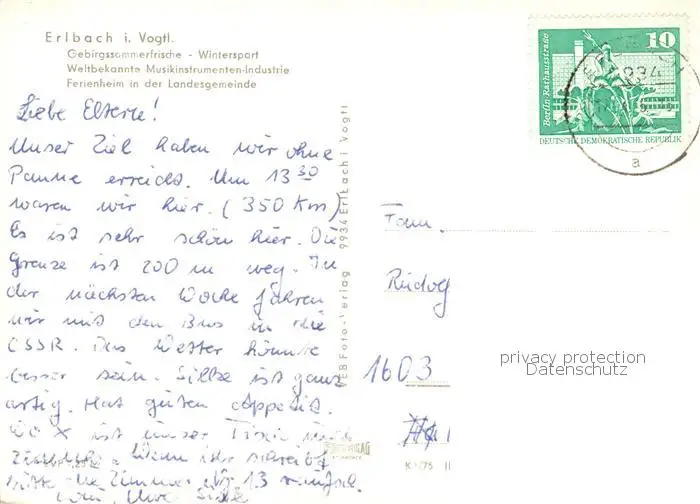 Erlbach i. Vogtl.
Gebirgssommerfrische - Wintersport
Weltbekannte Musikinstrumenten-Industrie
Ferienheim in der Landesgemeinde
Liebe Eltern!
Unser Ziel haben wir ohne
Panne erreicht. Um 13 30
waren wir hier. (350 Km)
Es ist sehr schön hier. Die
Grenze ist 200 m weg. In
der nächsten Woche fahren
wir mit den Bus in die
CSSR. Das Wetter könnte
besser sein. Silke ist ganz
artig. Hat guten Appetit.
ist unser Tisch
Wenn ihr schreibt
bitte Zimmer Nr. 13
Foto-Verlag 9934 Erlbach i Vogtl
10
Berlin-Rathausstraße
DEUTSCHE DEMOKRATISCHE REPUBLIK
9934
a
Fam.
1603
privacy protection
Datenschutz